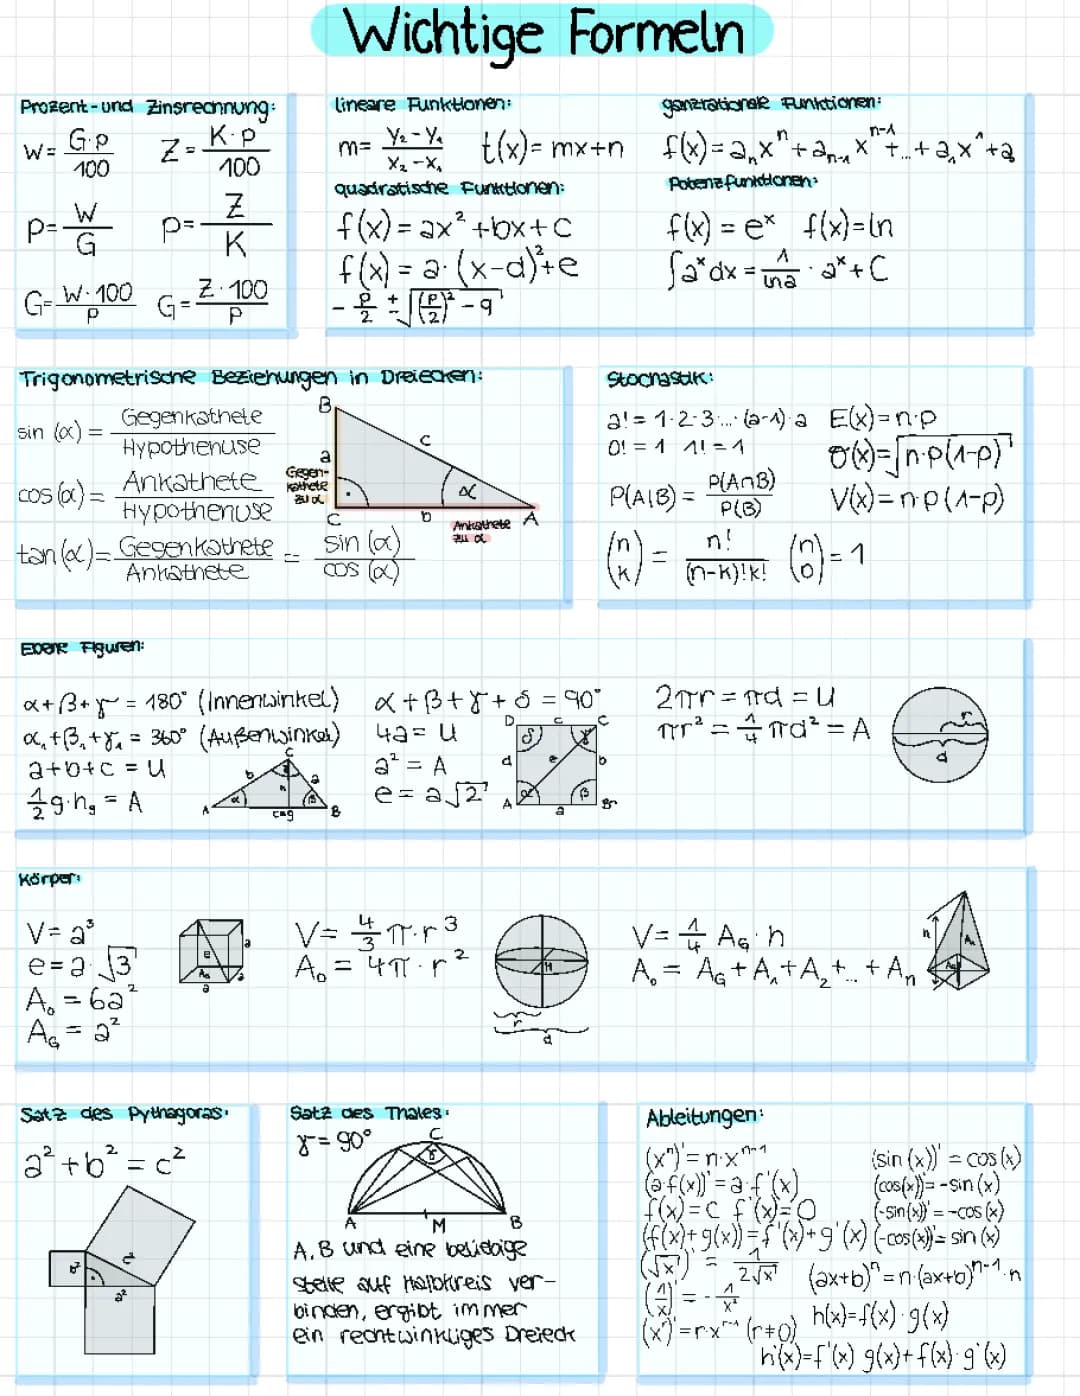 Wichtige Formeln
Prozent- und Zinsrechnung:
W = G·p/100   Z = K·p/100
p = W/G   p = Z/K
G = W·100/p   G = Z·100/p
lineare Funktionen:
m = (y₂-y₁)/(x₂-x₁)   t(x) = mx+n
quadratische Funktionen:
f(x) = ax² + bx + c
f(x) = a·(x-d)² + e
-p/2 ± √((p/2)² - q)
ganzrationale Funktionen:
f(x) = aₙxⁿ + aₙ₋₁xⁿ⁻¹ + ... + a₁x¹ + a
Potenzfunktionen:
f(x) = eˣ   f(x) = ln
∫aˣ dx = 1/ln a · aˣ + C
Trigonometrische Beziehungen in Dreiecken:
sin (α) = Gegenkathete/Hypothenuse
cos (α) = Ankathete/Hypothenuse
tan (α) = Gegenkathete/Ankathete = sin (α)/cos (α)
B
a
c
Gegen-
kathete
zu α
α
C
b
A
Ankathete
zu α
Stochastik:
a! = 1·2·3·...·(a-1)·a   E(x) = n·p
0! = 1   1! = 1   σ(x) = √(n·p(1-p))
P(A|B) = P(A∩B)/P(B)   V(x) = n·p(1-p)
(n k) = n!/((n-k)!k!)   (n 0) = 1
Ebene Figuren:
α+β+γ = 180° (Innenwinkel)
α₁+β₁+γ₁ = 360° (Außenwinkel)
a+b+c = U
½g·hg = A
C
b
γ
a
h
α
β
A
c=g
B
α+β+γ+δ = 90°
4a = U
a² = A
e = a√2
D
c
C
δ
γ
d
e
b
α
β
A
a
B
2πr = πd = U
πr² = ¼πd² = A
r
d
Körper:
V = a³
e = a·√3
A₀ = 6a²
A_G = a²
e
a
A_G
a
a
V = 4/3 π·r³
A₀ = 4π·r²
M
r
d
V = ¼ A_G·h
A₀ = A_G + A₁ + A₂ + ... + Aₙ
h
Aₙ
A_G
Satz des Pythagoras:
a² + b² = c²
b²
c²
a²
Satz des Thales:
γ = 90°
C
γ
A
M
B
A, B und eine beliebige
Stelle auf Halbkreis ver-
binden, ergibt immer
ein rechtwinkliges Dreieck
Ableitungen:
(xⁿ)' = n·xⁿ⁻¹   (sin (x))' = cos (x)
(a·f(x))' = a·f'(x)   (cos(x))' = -sin (x)
f(x) = c   f'(x) = 0   (-sin(x))' = -cos (x)
(f(x)+g(x))' = f'(x)+g'(x)   (-cos(x))' = sin (x)
(√x)' = 1/(2√x)   (ax+b)ⁿ = n·(ax+b)ⁿ⁻¹·n
(1/x)' = -1/x²   h(x) = f(x)·g(x)
(xʳ)' = r·xʳ⁻¹ (r≠0)
h'(x) = f'(x) g(x) + f(x)·g'(x)